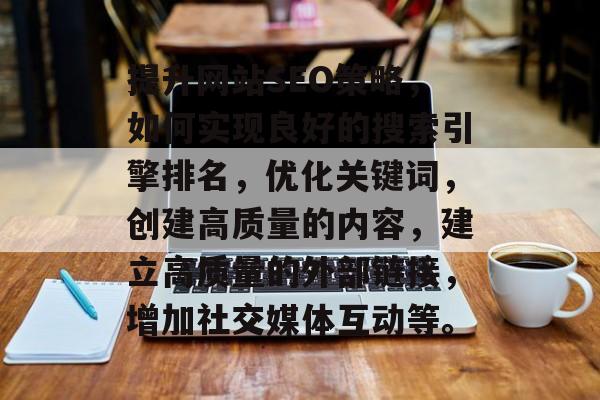 提升网站SEO策略，
如何实现良好的搜索引
擎排名，优化关键词，
创建高质量的内容，建
立高质量的外部链接，
增加社交媒体互动等。